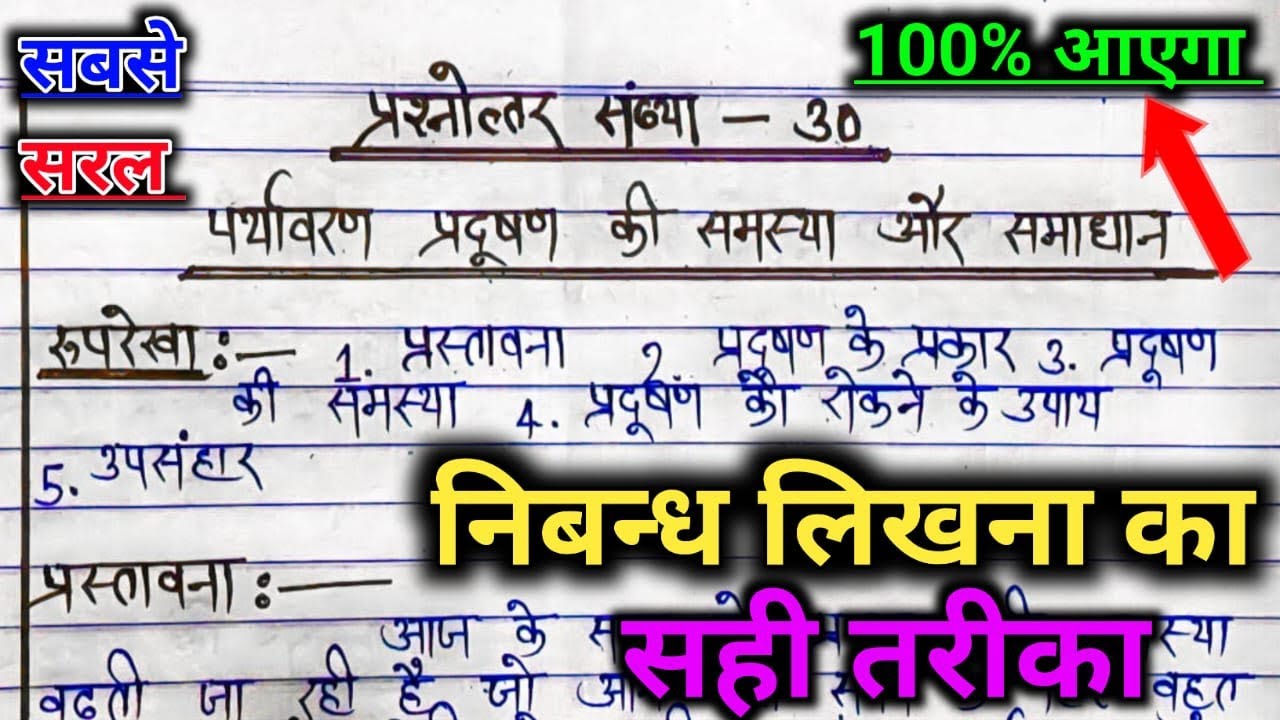 सबसे
सरल
100% आएगा
प्रश्नोत्तर संख्या – 30
पर्यावरण प्रदूषण की समस्या और समाधान
रुपरेखा :— 1. प्रस्तावना 2 प्रदूषण के प्रकार 3. प्रदूषण
की समस्या 4. प्रदूषण को रोकने के उपाय
5. उपसंहार
निबन्ध लिखना का
सही तरीका
प्रस्तावना :—
आज के
बढती जा रही है जो बहुत